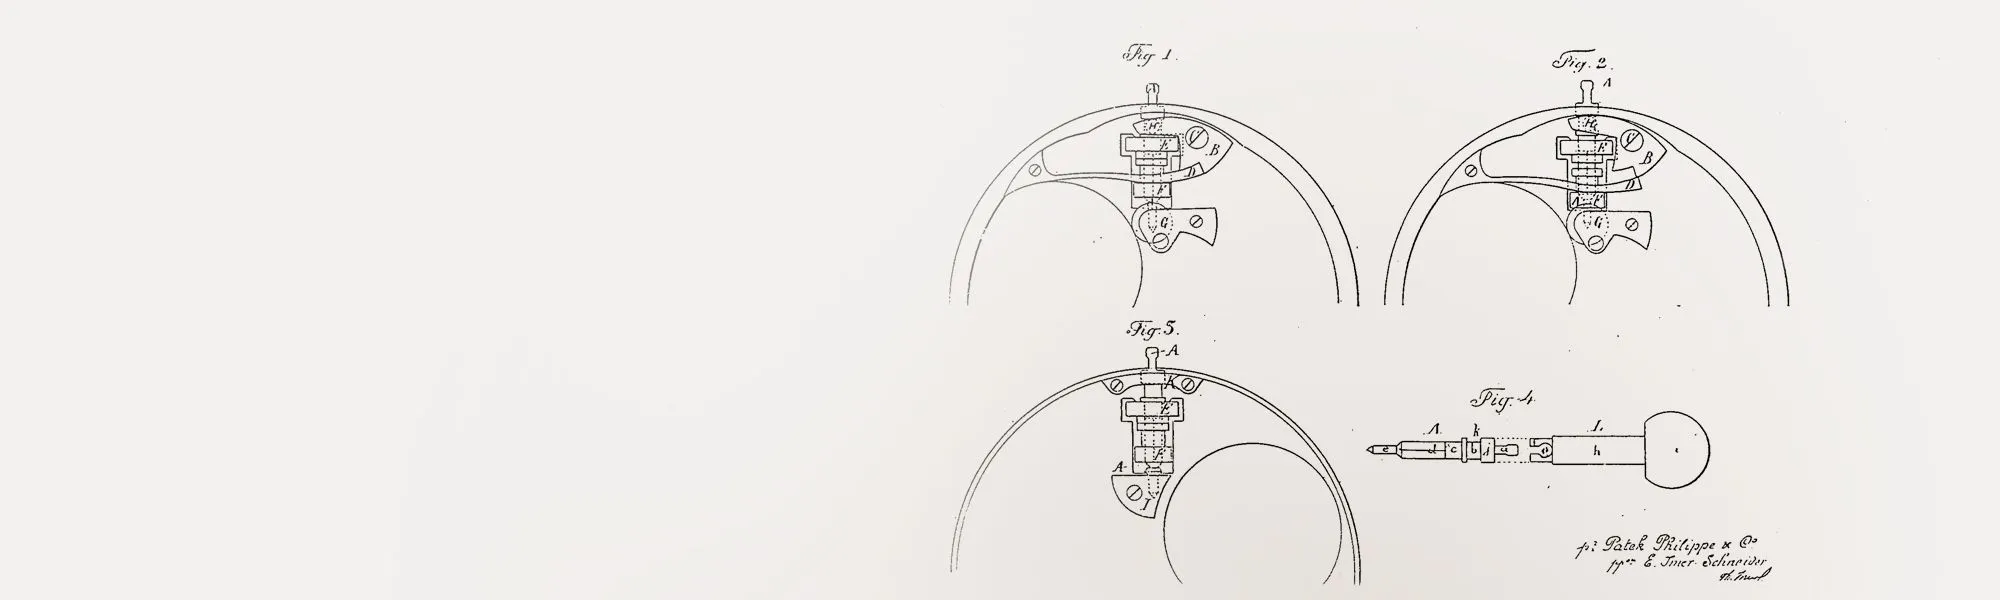 Fig 1.
A
H
E
C
B
D
F
G
Fig. 2.
A
H
E
C
B
D
A F
G
Fig. 5.
A
K
E
F
A
I
Fig. 4
A k L
e d c b j a o h i
pr Patek Philippe & Co
ppon E. Imer-Schneider